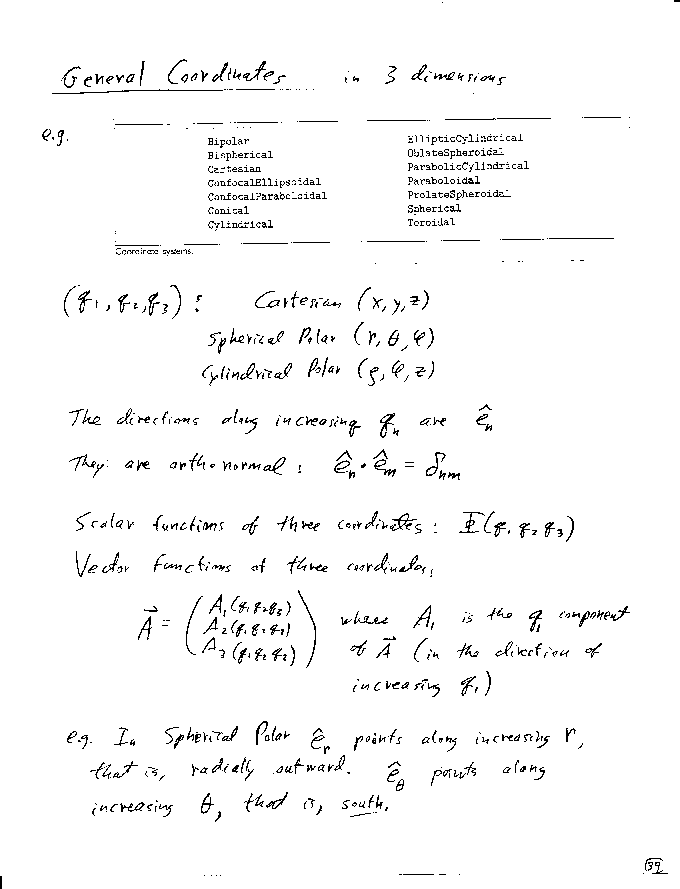 General Coordinates in 3 dimensions
e.g.
Bipolar EllipticCylindrical
Bispherical OblateSpheroidal
Cartesian ParabolicCylindrical
ConfocalEllipsoidal Paraboloidal
ConfocalParaboloidal ProlateSpheroidal
Conical Spherical
Cylindrical Toroidal
Coordinate systems.
(q₁, q₂, q₃) : Cartesian (x, y, z)
Spherical Polar (r, θ, φ)
Cylindrical Polar (ρ, φ, z)
The directions along increasing qₙ are êₙ
They are orthonormal : êₙ · êₘ = δₙₘ
Scalar functions of three coordinates : Φ(q₁ q₂ q₃)
Vector functions of three coordinates,
A⃗ = ( A₁(q₁q₂q₃) A₂(q₁q₂q₃) A₃(q₁q₂q₃) ) where A₁ is the q₁ component
of A⃗ (in the direction of
increasing q₁)
e.g. In Spherical Polar êᵣ points along increasing r,
that is, radially outward. ê_θ points along
increasing θ, that is, south.
39